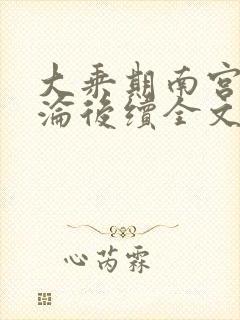 大乘期南宫
淪後續全文
心芮霖